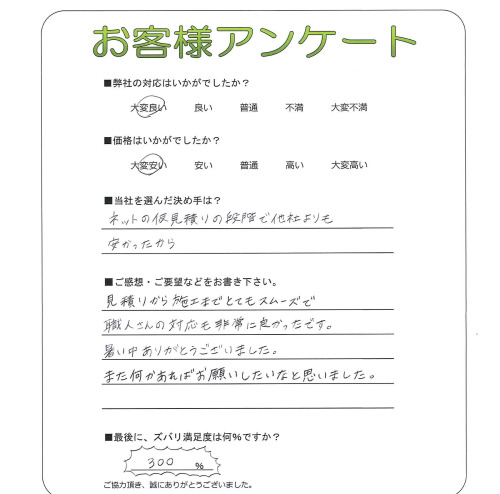 お客様アンケート
■弊社の対応はいかがでしたか？
大変良い 良い 普通 不満 大変不満
■価格はいかがでしたか？
大変安い 安い 普通 高い 大変高い
■当社を選んだ決め手は？
ネットの仮見積りの段階で他社よりも
安かったから
■ご感想・ご要望などをお書き下さい。
見積りから施工までとてもスムーズで
職人さんの対応も非常に良かったです。
暑い中ありがとうございました。
また何かあればお願いしたいなと思いました。
■最後に、ズバリ満足度は何%ですか？
300 %
ご協力頂き、誠にありがとうございました。